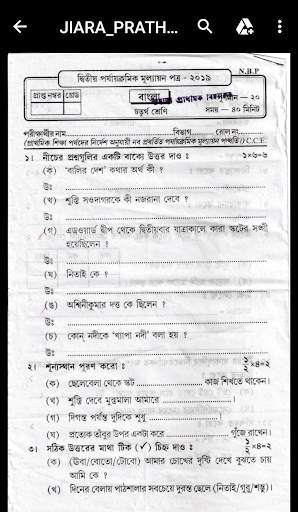 JIARA_PRATH...
N.B.P
দ্বিতীয় পর্যায়ক্রমিক মূল্যায়ন পত্র - ২০১৯
প্রাপ্ত নম্বর গ্রেড
বাংলা
পূর্ণমান — ২০
চতুর্থ শ্রেণি
সময় — ৪০ মিনিট
পরীক্ষার্থীর নাম বিভাগ রোল নং
(প্রাথমিক শিক্ষা পর্ষদের নির্দেশ অনুযায়ী নব প্রবর্তিত পর্যায়ক্রমিক মূল্যায়ন পদ্ধতি) C.C.E.
১। নীচের প্রশ্নগুলির একটি বাক্যে উত্তর দাও ঃ ১×৬=৬
(ক) ‘বালির দেশ’ কথার অর্থ কী ?
উঃ
(খ) শুস্তি সওদাগরকে কী নজরানা দেবে ?
উঃ
(গ) এডওয়ার্ড দ্বীপ থেকে দ্বিতীয়বার যাত্রাকালে কারা স্কটের সঙ্গী
হয়েছিলেন ?
উঃ
(ঘ) নিতাই কে ?
উঃ
(ঙ) অশ্বিনীকুমার দত্ত কে ছিলেন ?
উঃ
(চ) কোন্ নদীকে ‘খ্যাপা নদী’ বলা হয় ?
উঃ
২। শূন্যস্থান পূরণ করো ঃ ১/২×৪=২
(ক) ছেলেবেলা থেকে স্কট ........................ কাজ শিখতে থাকেন।
(খ) শুস্তি দেবে মুক্তমালা আমারে ........................।
(গ) দিগন্ত পর্যন্ত দুদিকে শুধু ........................।
(ঘ) প্রত্যেক তাঁবুর উপর একটা করে ........................ গুঁজে রাখেন।
৩। সঠিক উত্তরের মাথা টিক (✓) চিহ্ন দাও ঃ ১/২×৪=২
(ক) (ঊবা/বোতো/টোবো) আমার চোখের দৃষ্টি দেখে বুঝতে চায়
আমি কে ?
(খ) দিনের বেলায় পাঠশালার সবচেয়ে দুরন্ত ছেলে (নিতাই/গুরু/শম্ভু)।